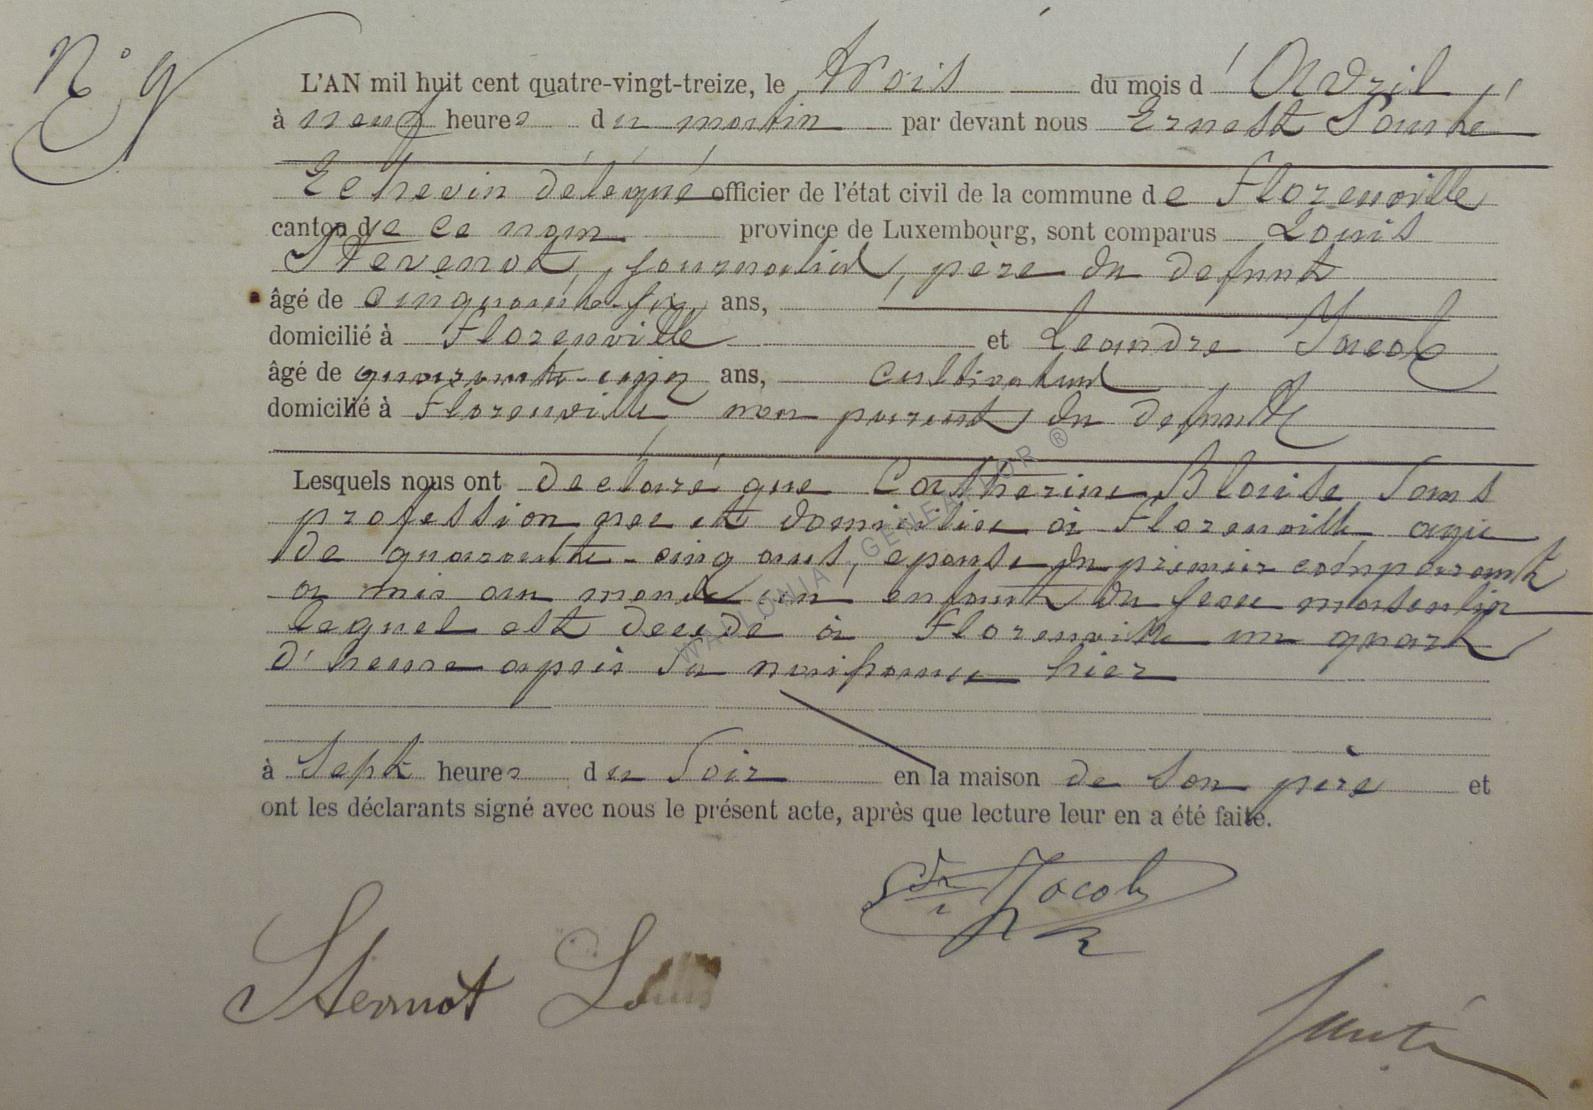 N° 9
L'AN mil huit cent quatre-vingt-treize, le trois du mois d'Avril
à neuf heures du matin par devant nous Ernest Santé
Echevin délégué officier de l'état civil de la commune de Florenville
canton de ce nom province de Luxembourg, sont comparus Louis
Stevenot, journalier, père du defunt
âgé de cinquante-six ans,
domicilié à Florenville et Leandre Jacob
âgé de quarante-cinq ans, cultivateur
domicilié à Florenville non parent du defunt
Lesquels nous ont declaré que Catherine Blaise sans
profession nee et domiciliee à Florenville agée
de quarante-cinq ans, epouse du premier comparant
a mis au monde un enfant du sexe masculin
lequel est decedé à Florenville un quart
d'heure après sa naissance hier
à Sept heures du Soir en la maison de son père et
ont les déclarants signé avec nous le présent acte, après que lecture leur en a été faite.
Jacob
Stevnot Louis
Santé
WALLONIA GENEATOR ®